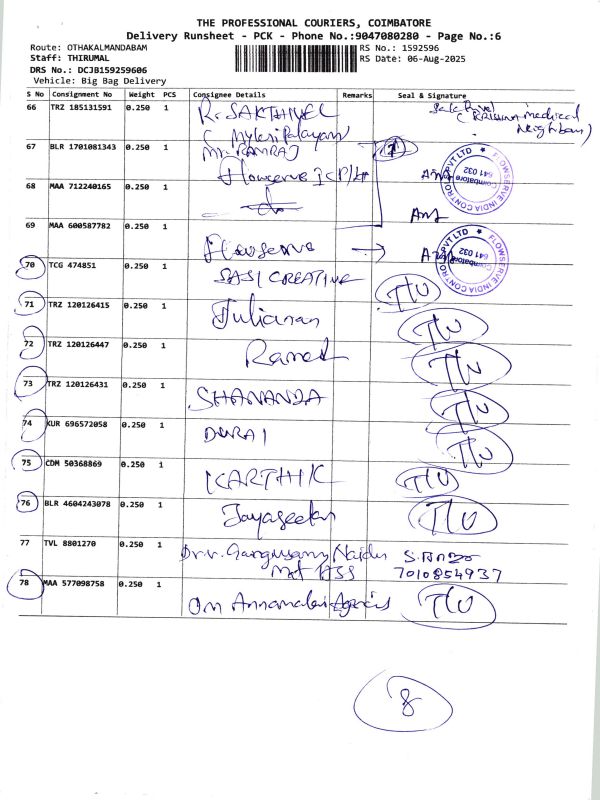 THE PROFESSIONAL COURIERS, COIMBATORE
Delivery Runsheet - PCK - Phone No.:9047080280 - Page No.:6
Route: OTHAKALMANDABAM
RS No.: 1592596
Staff: THIRUMAL
RS Date: 06-Aug-2025
DRS No.: DCJB159259606
Vehicle: Big Bag Delivery
S No Consignment No Weight PCS Consignee Details Remarks Seal & Signature
66 TRZ 185131591 0.250 1 R. SAKTHIVEL
(Krishna medical
67 BLR 1701081343 0.250 1 Mr. RAMRAJ
Flowserve
FLOWSERVE INDIA CONTROLS PVT LTD
Coimbatore
641 032
68 MAA 712240165 0.250 1
69 MAA 600587782 0.250 1 Flowserve
FLOWSERVE INDIA CONTROLS PVT LTD
Coimbatore
641 032
70 TCG 474851 0.250 1 SASI CREATIVE T/U
71 TRZ 120126415 0.250 1 T/U
72 TRZ 120126447 0.250 1 Ramesh T/U
73 TRZ 120126431 0.250 1 SHANANDA T/U
74 KUR 696572058 0.250 1 DURAI T/U
75 CDM 50368869 0.250 1 KARTHIK T/U
76 BLR 4604243078 0.250 1 Jayaseelan T/U
77 TVL 8801270 0.250 1 Naidu
Mat HSS 7010854937
78 MAA 577098758 0.250 1 Om Annamalai Agencis T/U
8